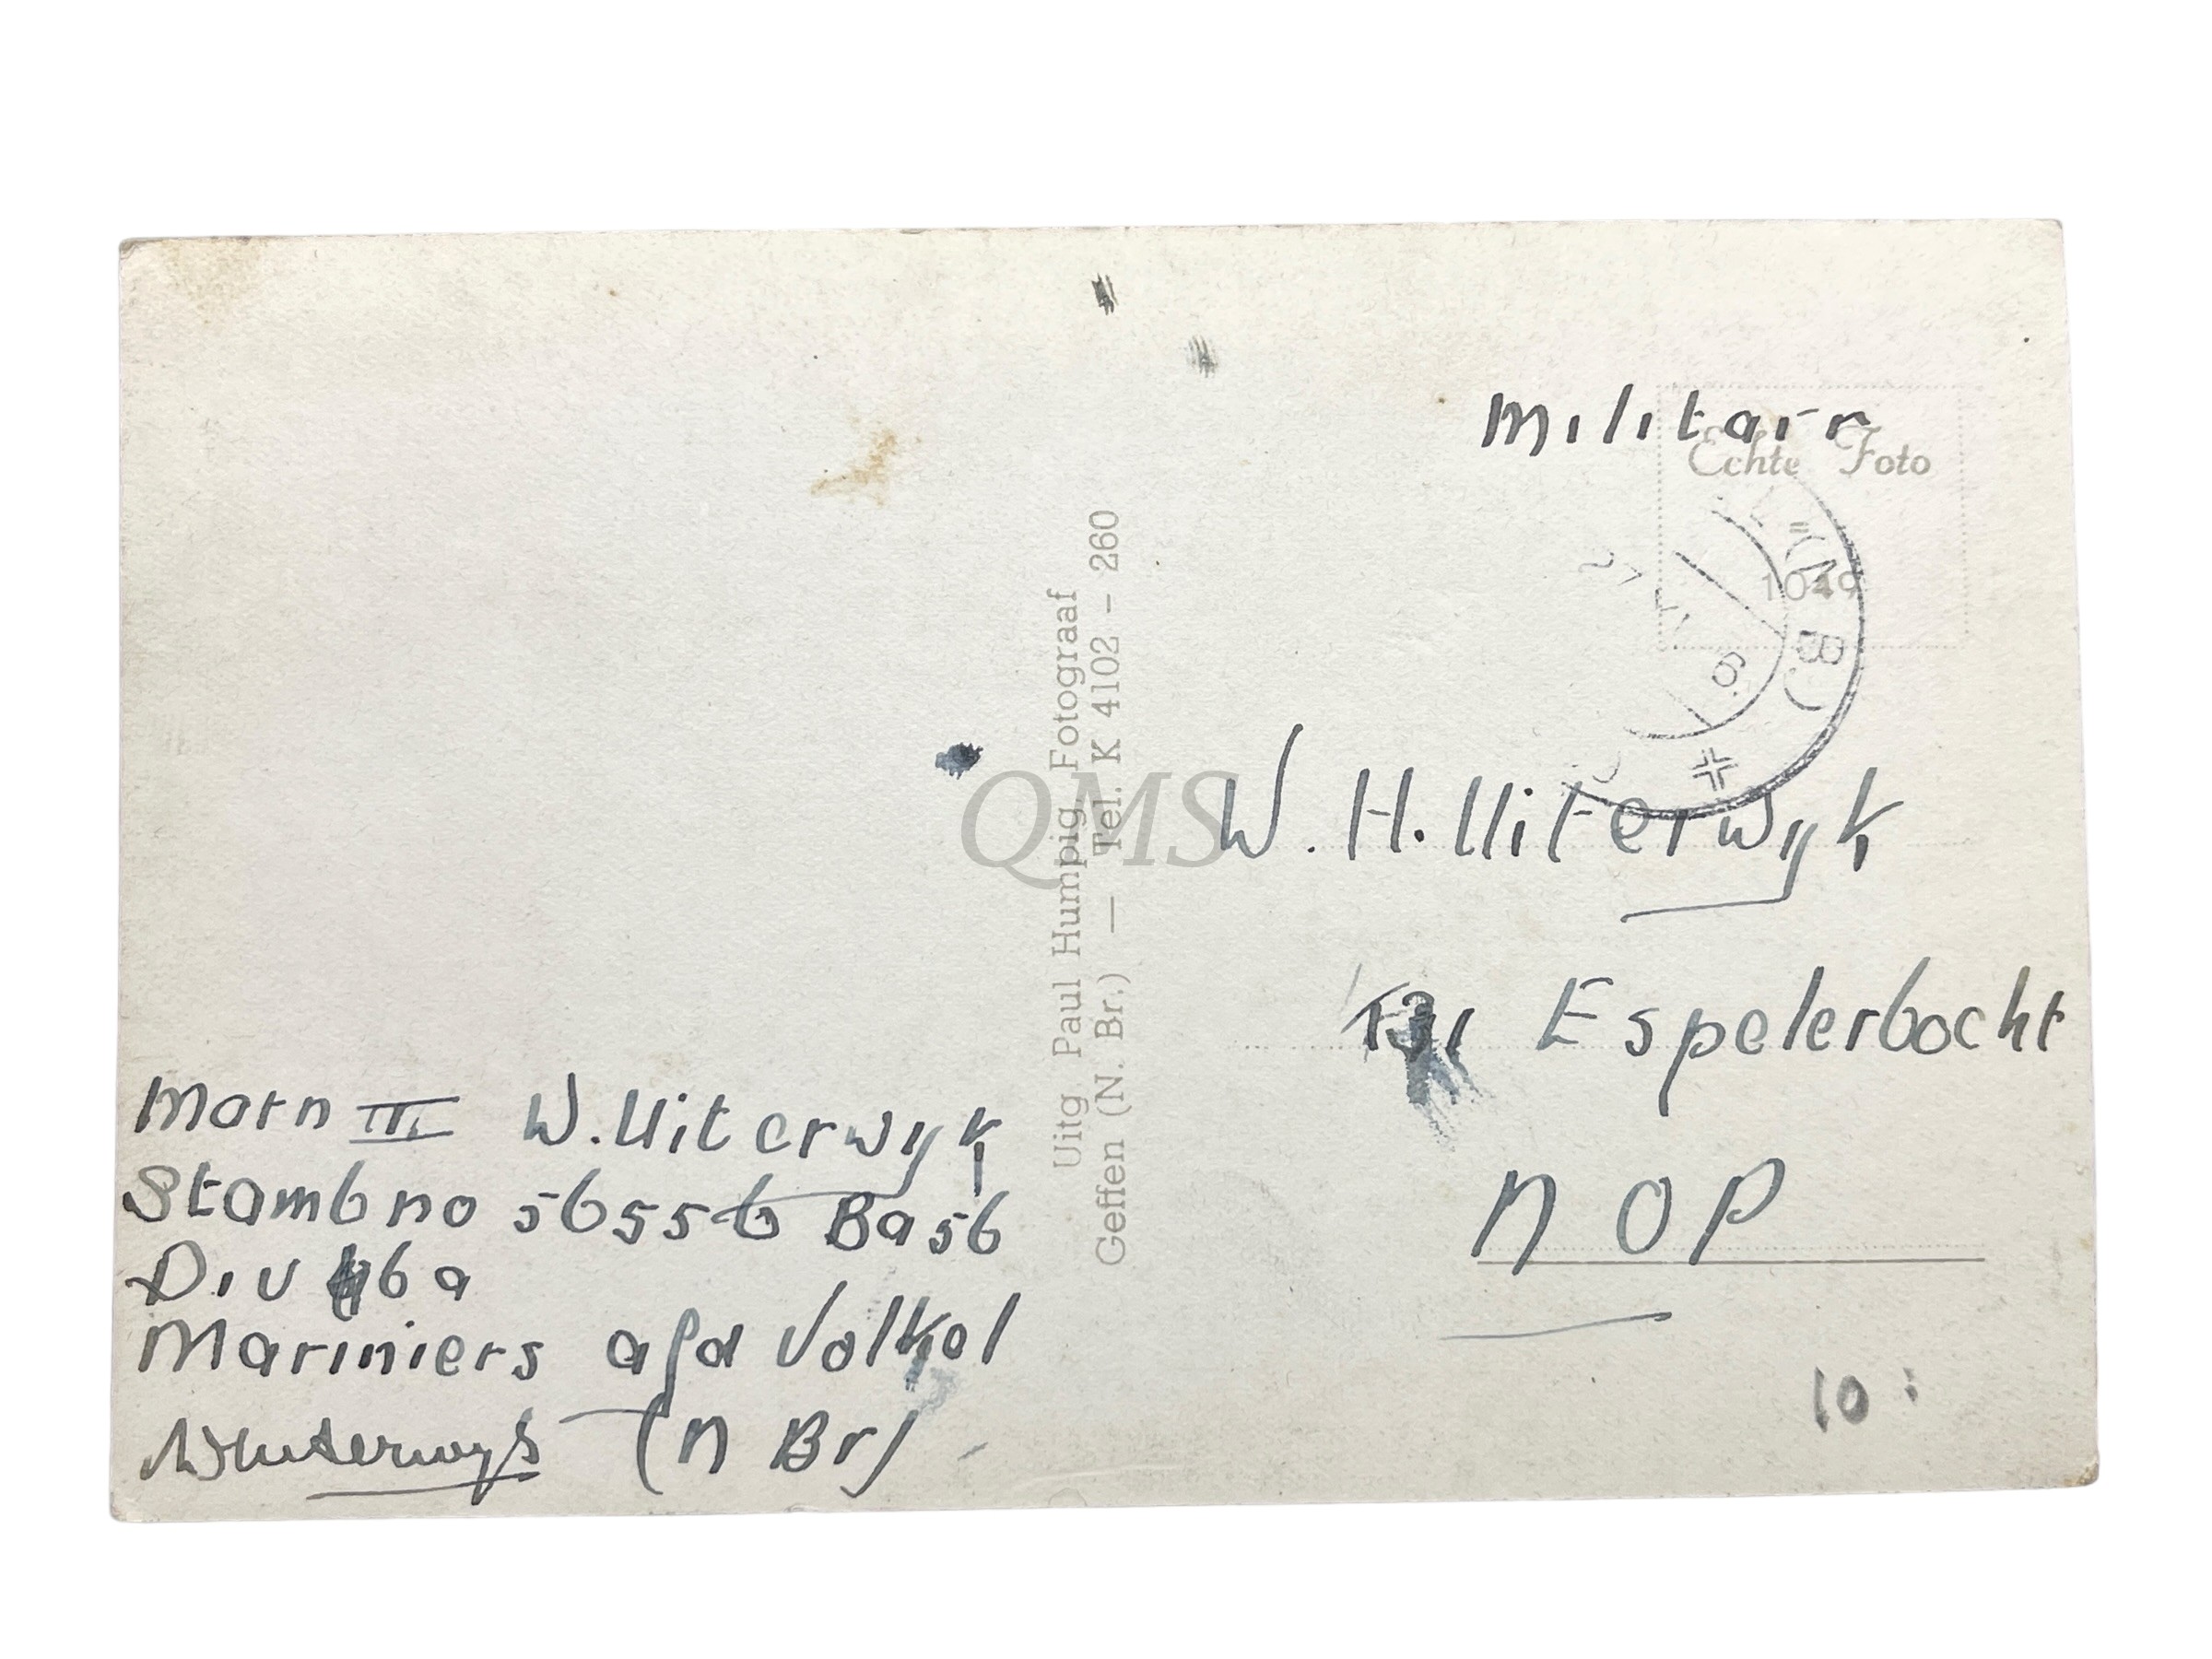 Marn III W. Uiterwyk
Stambno 56556 Ba56
Div 6a
Mariniers afd Volkel
(N Br)
WUiterwyk
Uitg Paul Humpig, Fotograaf
Geffen (N. Br.) — Tel. K 4102 - 260
QMS
Militair
Echte Foto
1049
(N B.)
W. H. Uiterwyk
Espelerbocht
NOP
10